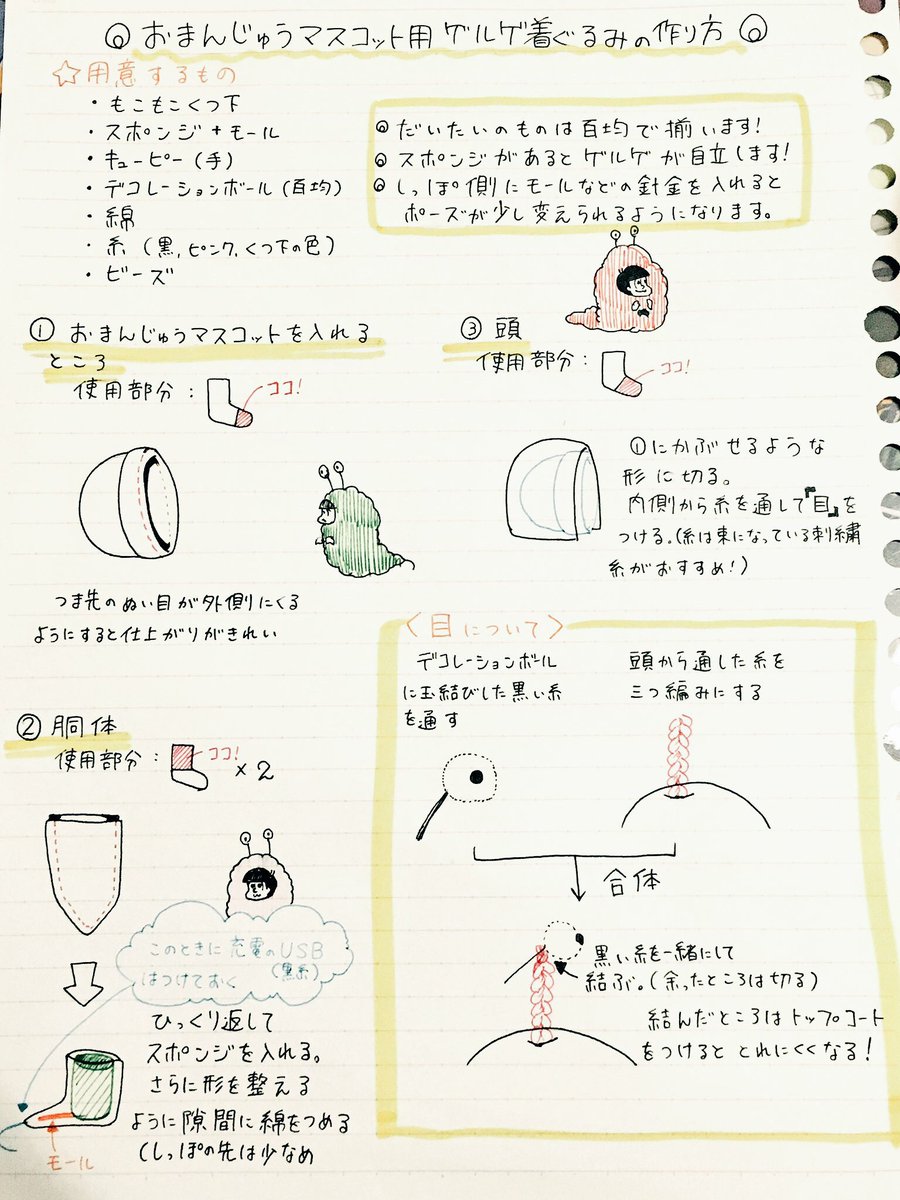 おまんじゅうマスコット用ゲルゲ着ぐるみの作り方
☆用意するもの
・もこもこくつ下
・スポンジ+モール
・キューピー(手)
・デコレーションボール(百均)
・綿
・糸(黒,ピンク,くつ下の色)
・ビーズ
◎だいたいのものは百均で揃います!
◎スポンジがあるとゲルゲが自立します!
◎しっぽ側にモールなどの針金を入れると
ポーズが少し変えられるようになります。
① おまんじゅうマスコットを入れる
ところ
使用部分:
ココ!
つま先のぬい目が外側にくる
ようにすると仕上がりがきれい
②胴体
使用部分:
ココ!
×2
このときに充電のUSB
(黒糸)
はつけておく
ひっくり返して
スポンジを入れる。
さらに形を整える
ように隙間に綿をつめる
(しっぽの先は少なめ
モール
③ 頭
使用部分:
ココ!
①にかぶせるような
形に切る。
内側から糸を通して『目』を
つける。(糸は束になっている刺繍
糸がおすすめ!)
〈目について〉
デコレーションボール
に玉結びした黒い糸
を通す
頭から通した糸を
三つ編みにする
合体
黒い糸を一緒にして
結ぶ。(余ったところは切る)
結んだところはトップコート
をつけるととれにくくなる!